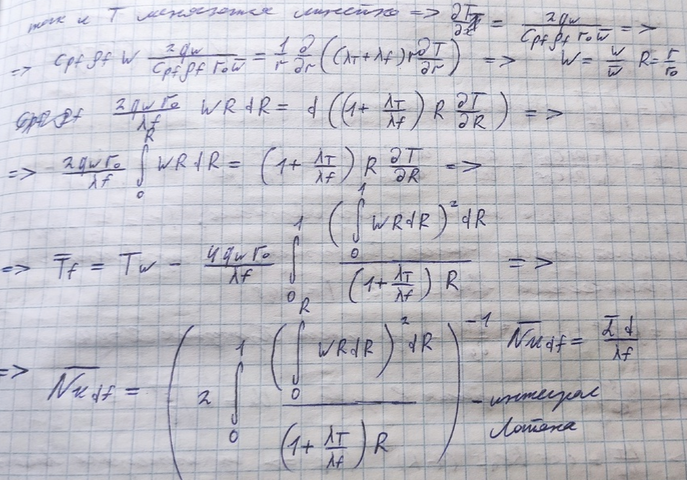 ток и T меняется линейно => ∂T/∂x = 2q_w / (C_pf ρ_f r_0 w̄) =>
=> C_pf ρ_f W 2q_w / (C_pf ρ_f r_0 w̄) = 1/r ∂/∂r ((λ_T + λ_f) r ∂T/∂r) => W = w/w̄ R = r/r_0
2q_w r_0 / λ_f WR dR = d((1 + λ_T/λ_f) R ∂T/∂R) =>
=> 2q_w r_0 / λ_f ∫_0^R WR dR = (1 + λ_T/λ_f) R ∂T/∂R =>
=> T̄_f = T_w − 4q_w r_0 / λ_f ∫_0^1 (∫_0^1 WR dR)^2 dR / ((1 + λ_T/λ_f) R) =>
=> N̄u_df = (2 ∫_0^1 (∫_0^R WR dR)^2 dR / ((1 + λ_T/λ_f) R))^-1 N̄u_df = ᾱ d / λ_f
- интеграл
Лойона